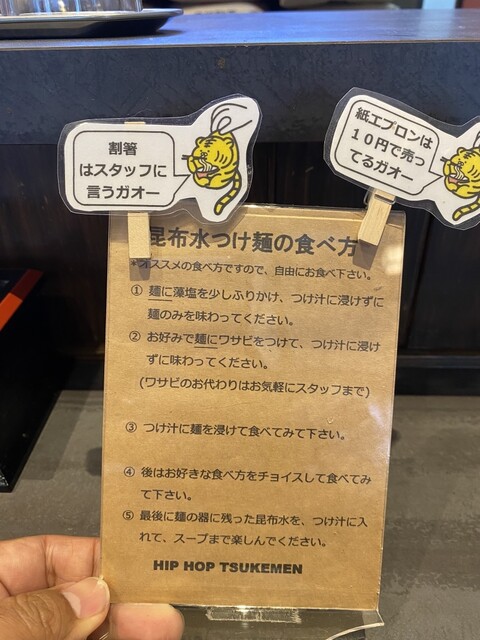 割箸
はスタッフに
言うガオー
紙エプロンは
１０円で売っ
てるガオー
昆布水つけ麺の食べ方
*オススメの食べ方ですので、自由にお食べ下さい。
① 麺に藻塩を少しふりかけ、つけ汁に浸けずに
麺のみを味わってください。
② お好みで麺にワサビをつけて、つけ汁に浸け
ずに味わってください。
(ワサビのお代わりはお気軽にスタッフまで)
③ つけ汁に麺を浸けて食べてみて下さい。
④ 後はお好きな食べ方をチョイスして食べてみ
て下さい。
⑤ 最後に麺の器に残った昆布水を、つけ汁に入
れて、スープまで楽しんでください。
HIP HOP TSUKEMEN